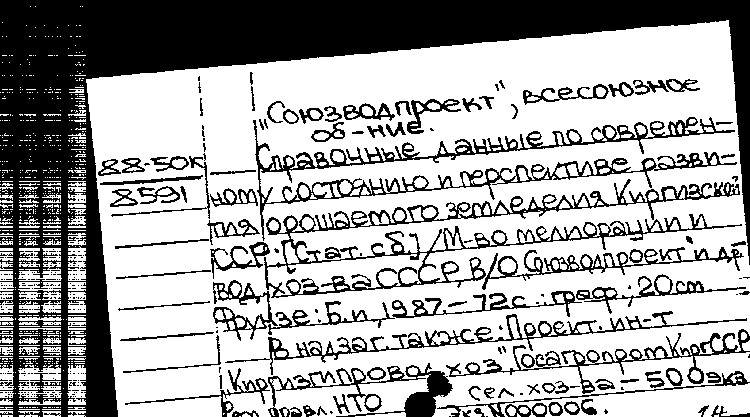 "Союзводпроект", всесоюзное
об-ние.
88-50К
8591
Справочные данные по современ-
ному состоянию и перспективе разви-
тия орошаемого земледелия Киргизской
ССР: [Стат. сб] / М-во мелиорации и
вод. хоз-ва СССР, В/О "Союзводпроект" и др.
Фрунзе: Б.и, 1987. - 72с.: граф.; 20см.
В надзаг. также: Проект. ин-т
"Киргизгипроводхоз", Госагропром КиргССР
Правл. НТО сел. хоз-ва - 500экз
Экз N000006.